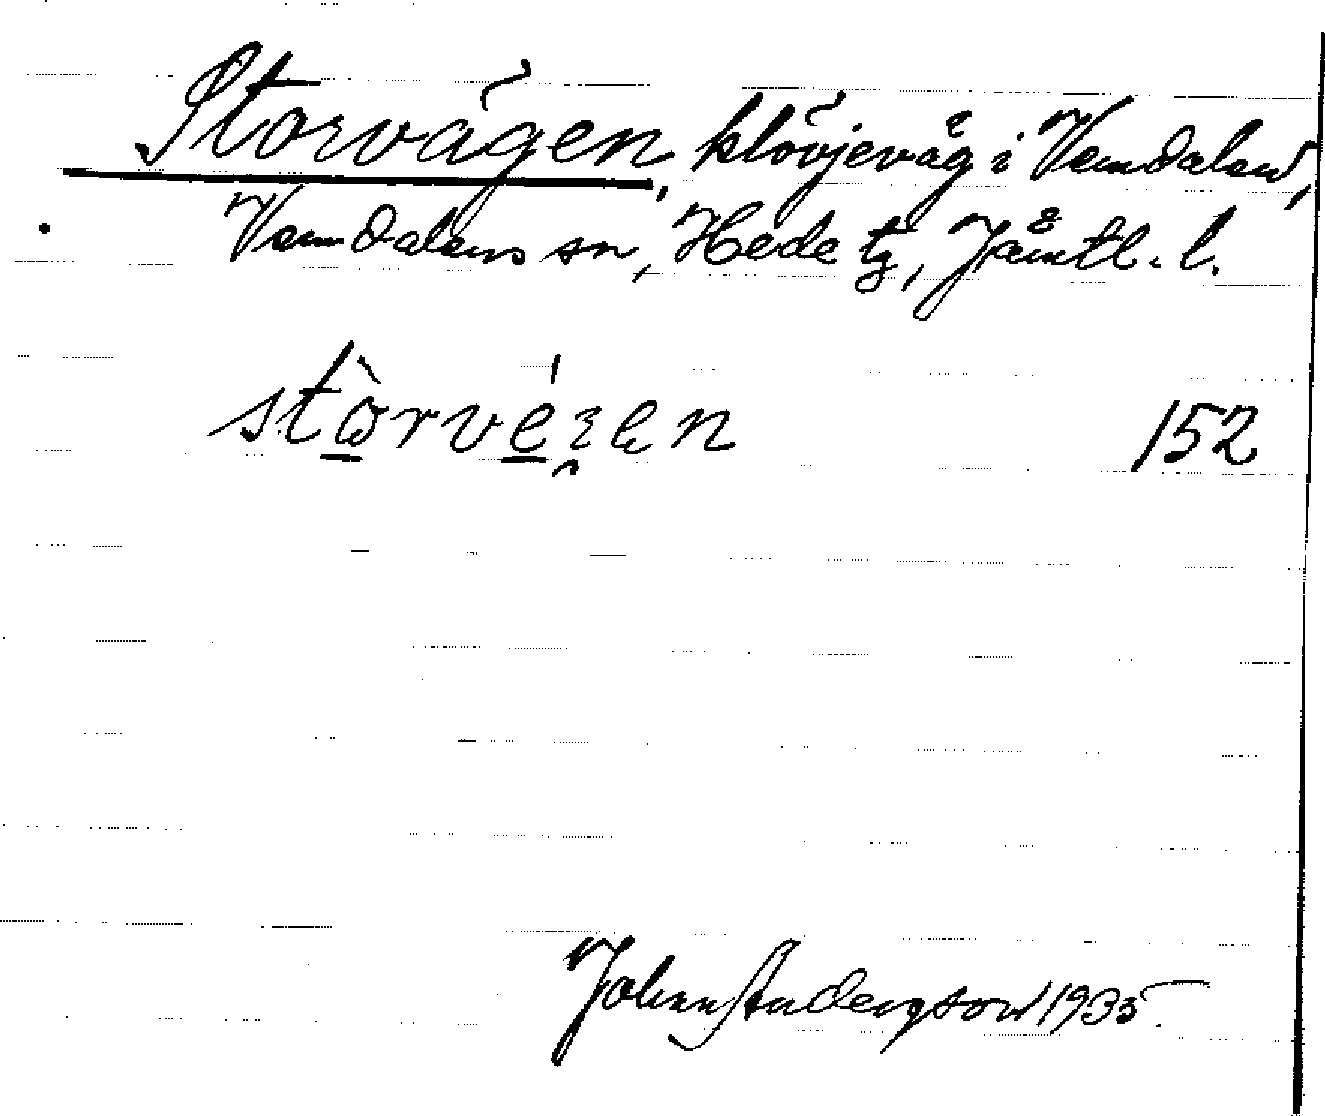 Storvägen, klövjeväg i Vemdalen,
Vemdalens sn, Hede tg, Jämtl. l.
stòrvéɀen 152
Johan Andersson 1935.